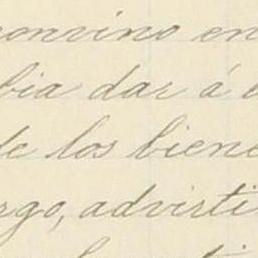 convino en
bia dar á
de los biene
rgo, advirti